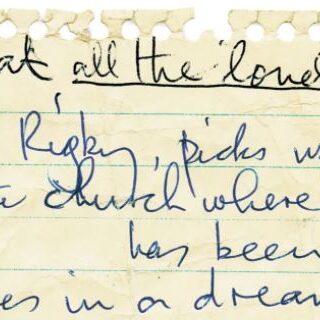 at all the lone
Rigby, picks w
church where
has been
es in a dream